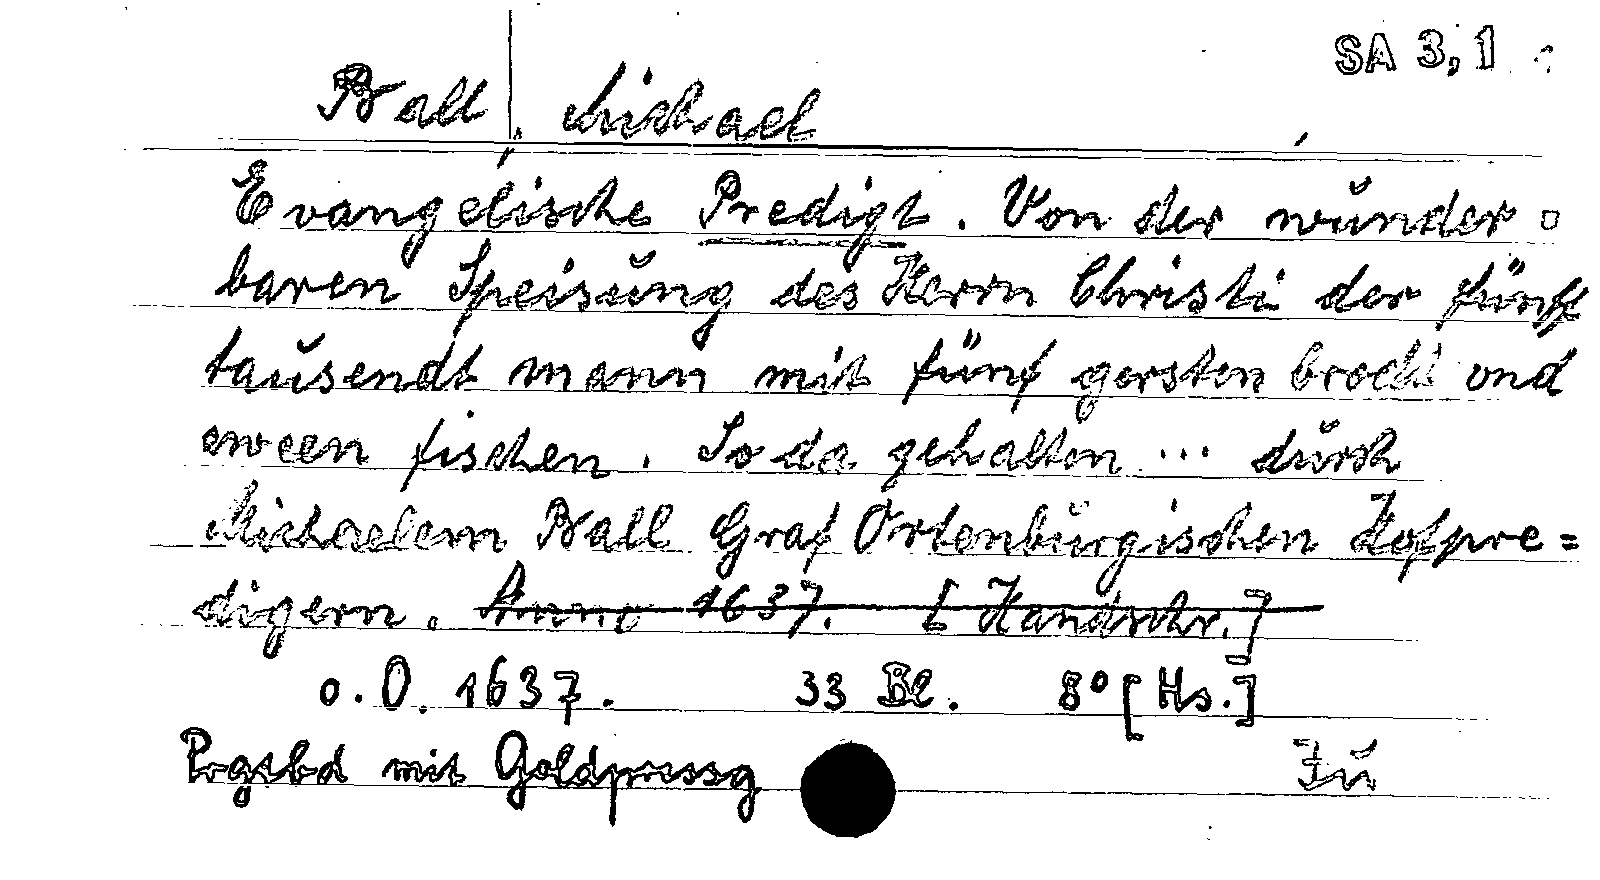 SA 3,1
Ball, Michael
Evangelische Predigt. Von der wunder=
baren Speisung des Herrn Christi der fünff
tausendt mann mit fünf gersten brodt und
zween fischen. So da gehalten ... durch
Michaelem Ball Graf Ortenburgischen Hofpre=
digern. Anno 1637. [Handschr.]
o.O. 1637. 33 Bl. 8° [Hs.]
Prgtbd mit Goldpressg